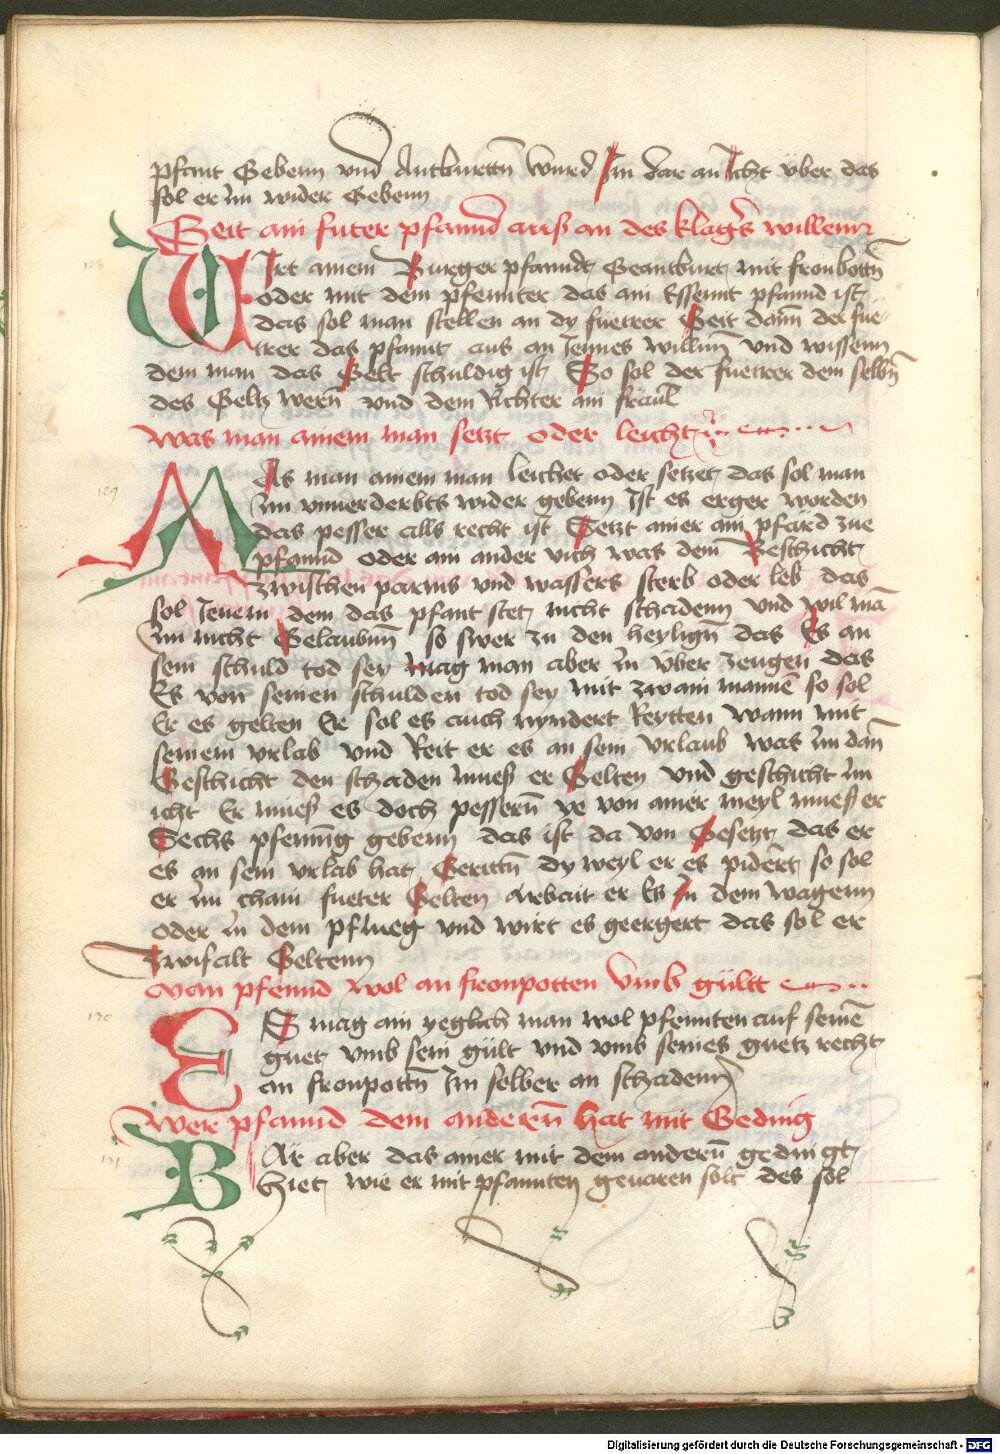 pfant Gebenn vnd Antburttn wurd Im dar an Icht vber das
sol er im wider Gebenn
Geit ain futer pfannd auß an des klagers willenn
128
Wirt ainem Burger pfanndt Geantburt mit fronbottn
oder mit dem pfennter das ain Essennt pfannd ist
das sol man stellen an dy fuetrer Geit dann der fue-
trer das pfannt aus an Jennes willen vnd wissenn
dem man das Gelt schuldig ist So sol der fuetrer dem selbn
des Geltz wern vnd dem Richter ain fräul
was man ainem man setzt oder leicht
129
Was man ainem man leichet oder setzet das sol man
im vnuerderbts wider gebenn Ist es erger worden
das pesser alls recht ist Setzt ainer ain pfärd zue
pfannd oder ain ander vich was dem Beschicht
zwischen parms vnd wassers sterb oder leb das
sol Jenem dem das pfant stet nicht schadenn vnd wil mā
im nicht Gelaubnn so swer zu den heylign das Es an
sein schuld tod sey mag man aber in vber zeugen das
Es von seinen schulden tod sey mit zwain mannē so sol
Er es gelten Er sol es auch nyndert Reytten wann mit
seinem vrlab vnd Reit er es an sein vrlaub was im dan
Geschicht den schaden mueß er Gelten vnd geschicht im
icht Er mueß es doch pessern ye von ainer meyl mueß er
Sechs pfening gebenn das ist da von Gesetzt das er
es an sein vrlab hat Gerittn dy weyl er es pidert so sol
er im chain fueter Gelten Arbait er Es in dem wagenn
oder in dem pflueg vnd wirt es geergert das sol er
zwifalt Geltenn
Man pfennd wol an fronpotten vmb gültt
130
ES mag ain yeglich man wol pfennten auf seinē
guet vmb sein gült vnd vmb seines guetz recht
an fronpottn Im selber an schadenn
wer pfannd dem anderen hat mit Geding
131
BAr aber das ainer mit dem andern gedingt
Hiet wie er mit pfannten geuaren solt des sol
Digitalisierung gefördert durch die Deutsche Forschungsgemeinschaft - DFG